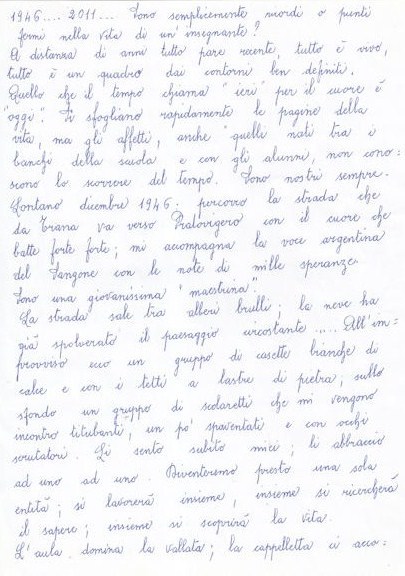 1946.... 2011.... Sono semplicemente ricordi o punti
fermi nella vita di un'insegnante?
A distanza di anni tutto pare recente, tutto è vivo,
tutto è un quadro dai contorni ben definiti.
Quello che il tempo chiama "ieri" per il cuore è
"oggi". Si sfogliano rapidamente le pagine della
vita, ma gli affetti, anche quelli nati tra i
banchi della scuola e con gli alunni, non cono=
scono lo scorrere del tempo. Sono nostri sempre.
Lontano dicembre 1946: percorro la strada che
da Trana va verso Pratovigero con il cuore che
batte forte forte; mi accompagna la voce argentina
del Sangone con le note di mille speranze.
Sono una giovanissima "maestrina".
La strada sale tra alberi brulli; la neve ha
già spolverato il paesaggio circostante..... All'im=
provviso ecco un gruppo di casette bianche di
calce e con i tetti a lastre di pietra; sullo
sfondo un gruppo di scolaretti che mi vengono
incontro titubanti, un po' spaventati e con occhi
scrutatori. Li sento subito miei; li abbraccio
ad uno ad uno. Diventeremo presto una sola
entità; si lavorerà insieme, insieme si ricercherà
il sapere; insieme si scoprirà la vita.
L'aula domina la vallata; la cappelletta ci acco=